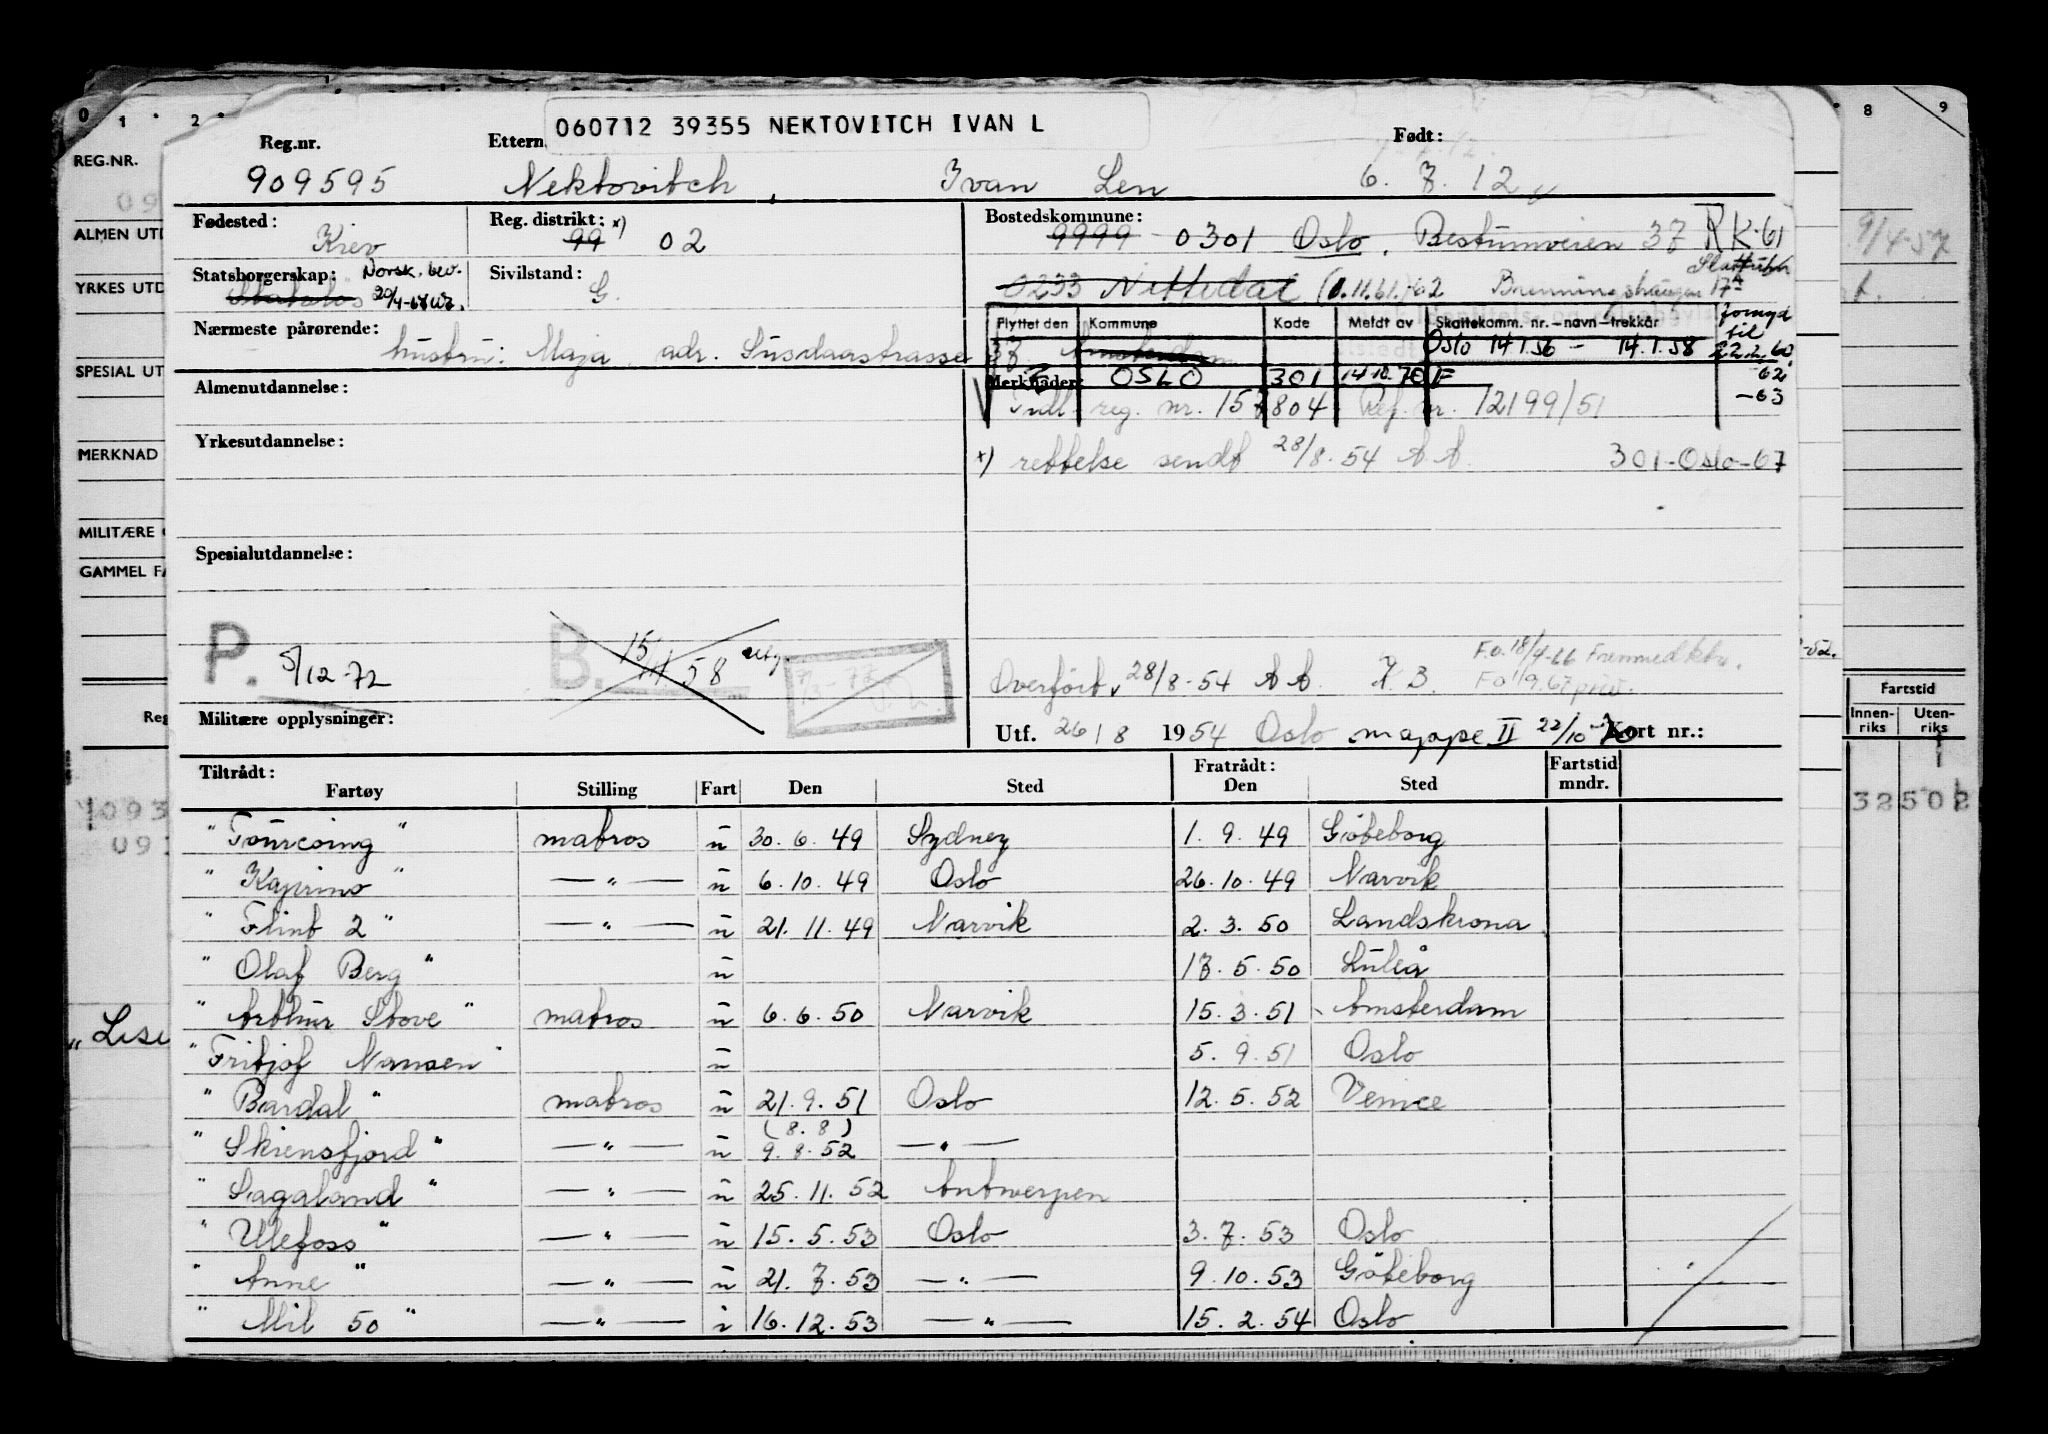 0 1 2 8 9
060712 39355 NEKTOVITCH IVAN L
REG.NR.
Reg.nr. Ettern Født:
909595 Nektovitch, Ivan Len 6.7.12
ALMEN UTD
Fødested: Kiev
Reg. distrikt: x) 99 02
Bostedskommune: 9999 0301 Oslo, Bestumveien 37 RK-61
9/4-57
YRKES UTD
Statsborgerskap: Statsløs Norsk. bev. 20/4-67
Sivilstand: G.
0233 Nittedal (1.11.61) Brenningshaugen 17A
Flyttet den Kommune Kode Meldt av Skattekomm. nr.-navn-trekkår
fornyd til
Nærmeste pårørende: hustru: Maja, adr. Susdaastrasse 37 Amsterdam
Oslo 14.1.56 - 14.1.58 22.2.60
SPESIAL UT
Almenutdannelse:
OSLO 301 14.10.70 F -62
Merknader: Indl. reg. nr. 157804 Ref. nr. 12199/51 -63
MERKNAD
Yrkesutdannelse:
x) rettelse sendt 28/8.54 AA 301-Oslo-67
MILITÆRE
Spesialutdannelse:
GAMMEL FA
P. 5/12-72
B. 15/11 58 utg.
7/3-77
Overført 28/8-54 AA. F.o. 18/4-66 Fremmedktr.
Militære opplysninger:
Utf. 26/8 1954 Oslo mappe II 22/10-70 Kort nr.:
Reg
Fartstid
Innen-riks Uten-riks
32502
Tiltrådt: Fratrådt:
Fartøy Stilling Fart Den Sted Den Sted Fartstid mndr.
"Tourcoing" matros u 30.6.49 Sydney 1.9.49 Göteborg
"Kapirino" —"— u 6.10.49 Oslo 26.10.49 Narvik
"Flint 2" —"— u 21.11.49 Narvik 2.3.50 Landskrona
"Olaf Berg" u 17.5.50 Luleå
"Arthur Stove" matros u 6.6.50 Narvik 15.3.51 Amsterdam
"Fritjof Nansen" u 5.9.51 Oslo
"Bardal" matros u 21.9.51 Oslo 12.5.52 Venice
"Skiensfjord" —"— u (8.8) 9.8.52 —"—
"Sagaland" —"— u 25.11.52 Antwerpen
"Ullefoss" —"— u 15.5.53 Oslo 3.7.53 Oslo
"Anne" —"— u 21.7.53 —"— 9.10.53 Göteborg
"Mil 50" —"— i 16.12.53 —"— 15.2.54 Oslo